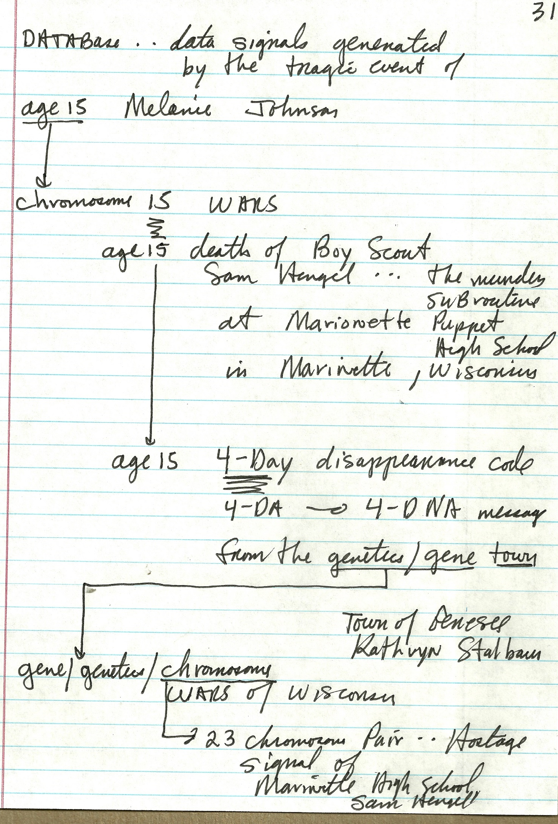 31
DATABase .. data signals generated
by the tragic event of
age 15 Melanie Johnson
chromosome 15 WARS
age 15 death of Boy Scout
Sam Hengel ... the murder
SUBroutine
at Marionette Puppet
High School
in Marinette, Wisconsin
age 15 4-Day disappearance code
4-DA → 4-DNA message
from the genetics/gene town
Town of Genesee
Kathryn Stalbaum
gene/genetics/chromosome
WARS of Wisconsin
23 chromosome Pair .. Hostage
signal of
Marinette High School
Sam Hengel